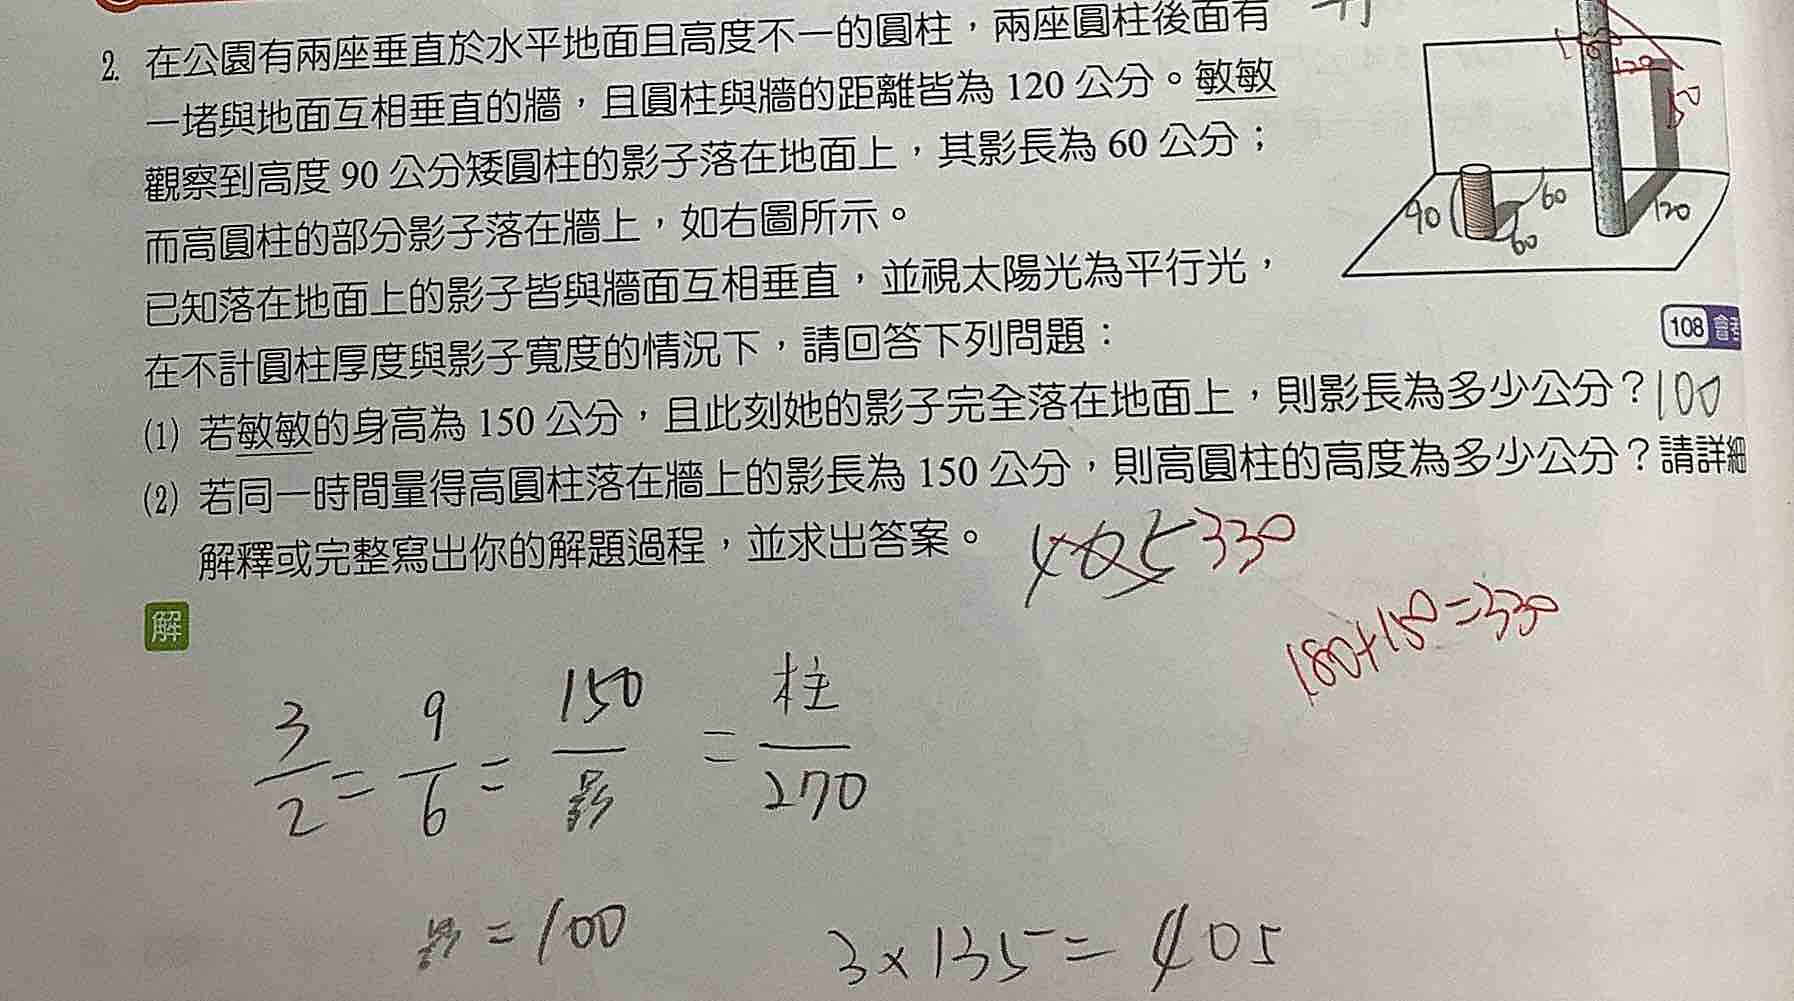 2. 在公園有兩座垂直於水平地面且高度不一的圓柱，兩座圓柱後面有
一堵與地面互相垂直的牆，且圓柱與牆的距離皆為 120 公分。敏敏
觀察到高度 90 公分矮圓柱的影子落在地面上，其影長為 60 公分；
而高圓柱的部分影子落在牆上，如右圖所示。
已知落在地面上的影子皆與牆面互相垂直，並視太陽光為平行光，
在不計圓柱厚度與影子寬度的情況下，請回答下列問題：
120
150
90
60
60
120
108 會考
⑴ 若敏敏的身高為 150 公分，且此刻她的影子完全落在地面上，則影長為多少公分？100
⑵ 若同一時間量得高圓柱落在牆上的影長為 150 公分，則高圓柱的高度為多少公分？請詳細
解釋或完整寫出你的解題過程，並求出答案。 405 330
180+150=330
解
3/2 = 9/6 = 150/影 = 柱/270
影 = 100
3×135 = 405